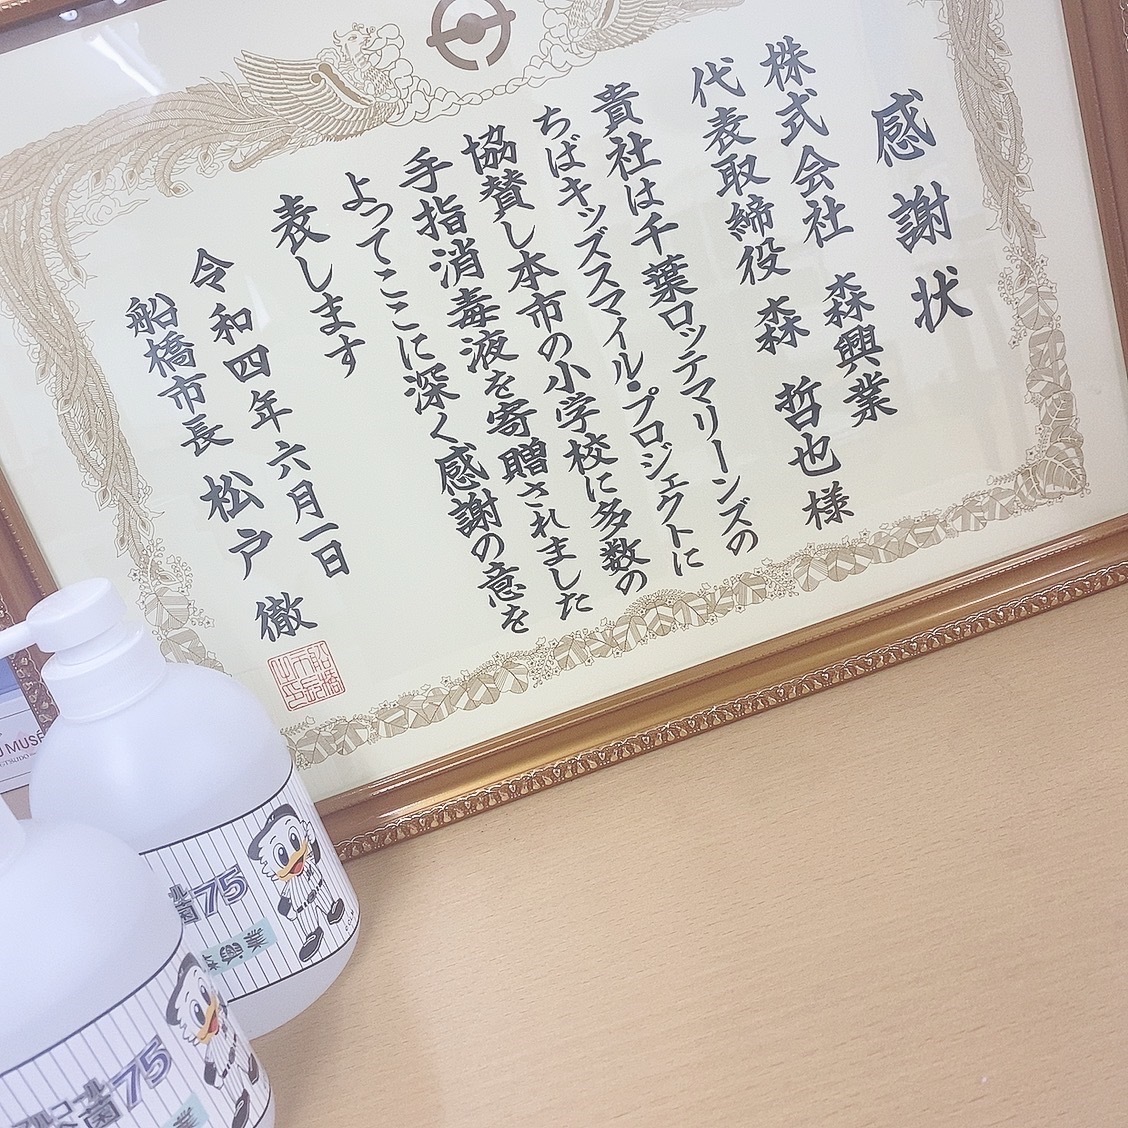 感謝状
株式会社 森興業
代表取締役 森 哲也様
貴社は千葉ロッテマリーンズの
ちばキッズスマイル・プロジェクトに
協賛し本市の小学校に多数の
手指消毒液を寄贈されました
よってここに深く感謝の意を
表します
令和四年六月一日
船橋市長 松戸 徹
MUSE
菌75
アルコール
菌75